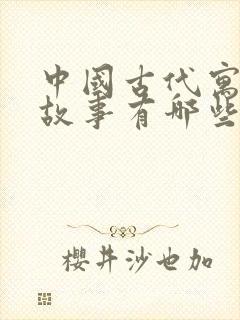 中國古代寓
故事有哪些
櫻井沙也加